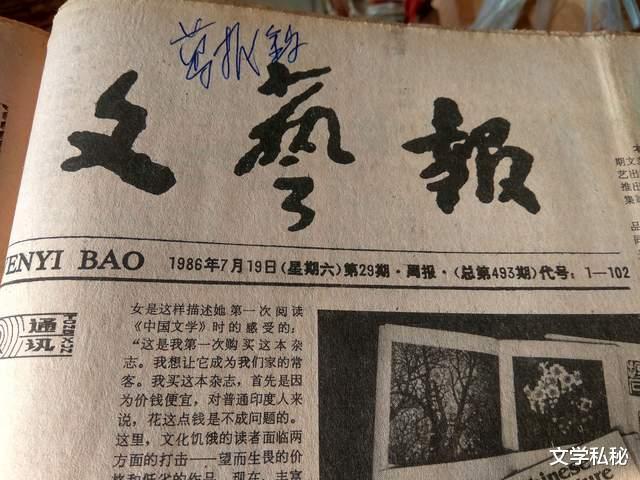 文藝報
WENYI BAO 1986年7月19日(星期六)第29期·周报·(总第493期)代号:1—102
通讯
女是这样描述她第一次阅读
《中国文学》时的感受的:
“这是我第一次购买这本杂
志。我想让它成为我们家的常
客。我买这本杂志,首先是因
为价钱便宜,对普通印度人来
说,花这点钱是不成问题的。
这里,文化饥饿的读者面临两
方面的打击——望而生畏的价
格和低劣的作品。现在,丰富
Chinese
文学私秘